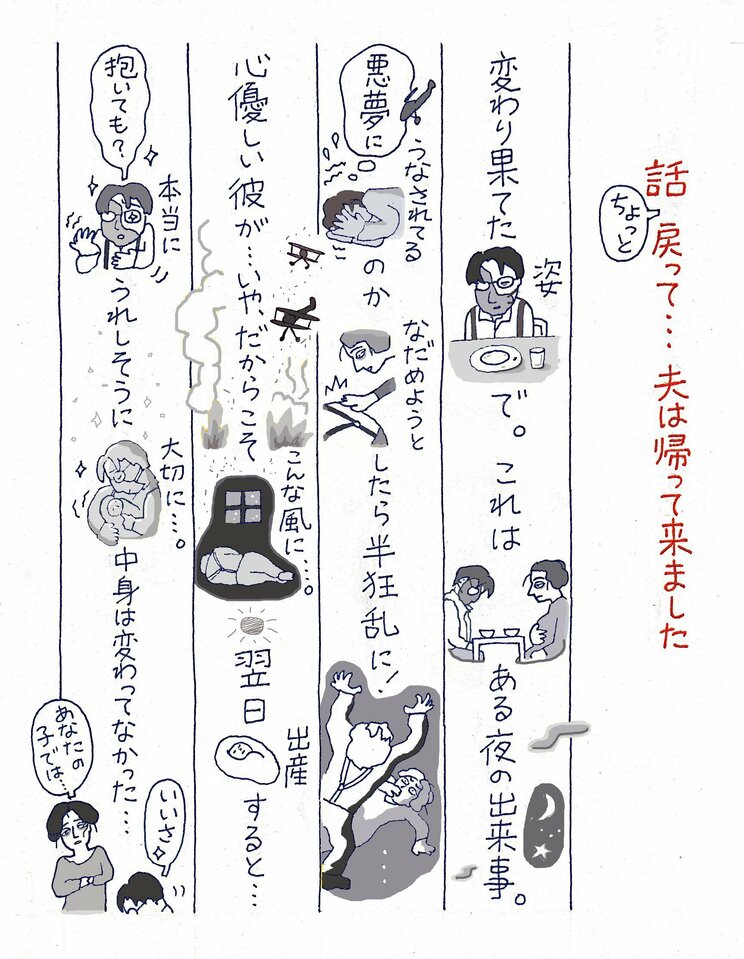 話
ちょっと
戻って…夫は帰って来ました
変わり果てた姿で。これは
ある夜の出来事。
悪夢に
うなされてる
のか
なだめようと
したら半狂乱に!
心優しい彼が…いや、だからこそ
こんな風に…。
翌日
出産
すると…
抱いても?
本当に
うれしそうに
大切に…。
中身は変わってなかった…
あなたの
子では…
いいさ